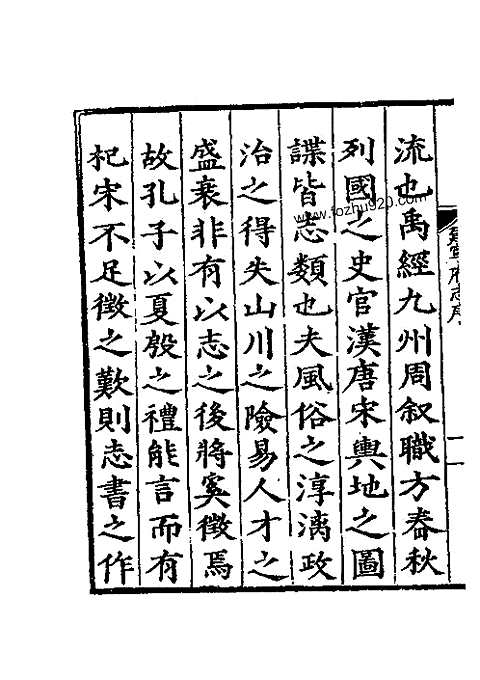 建寧府志序
二
流也禹經九州周叙職方春秋
列國之史官漢唐宋輿地之圖
諜皆志類也夫風俗之淳漓政
治之得失山川之險易人才之
盛衰非有以志之後將奚徵焉
故孔子以夏殷之禮能言而有
杞宋不足徵之歎則志書之作
www.fozhu920.com